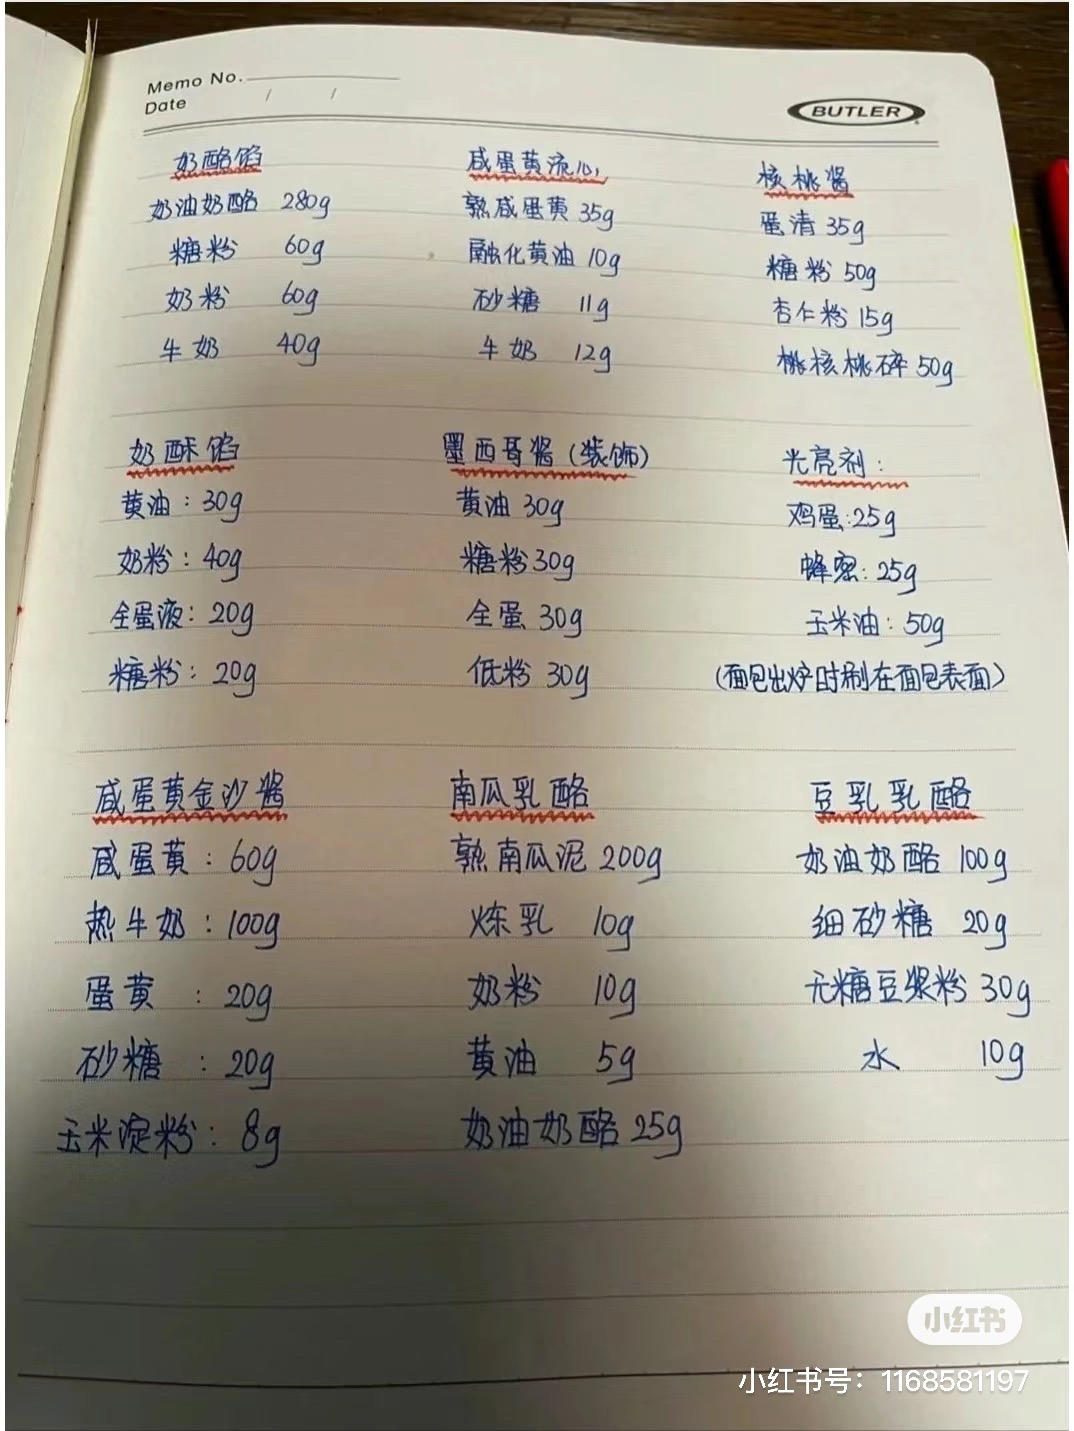 Memo No.
Date / /
BUTLER
奶酪馅
奶油奶酪 280g
糖粉 60g
奶粉 60g
牛奶 40g
咸蛋黄流心
熟咸蛋黄 35g
融化黄油 10g
砂糖 11g
牛奶 12g
核桃酱
蛋清 35g
糖粉 50g
杏仁粉 15g
桃核桃碎 50g
奶酥馅
黄油:30g
奶粉:40g
全蛋液:20g
糖粉:20g
墨西哥酱(装饰)
黄油 30g
糖粉 30g
全蛋 30g
低粉 30g
光亮剂:
鸡蛋:25g
蜂蜜:25g
玉米油:50g
(面包出炉时刷在面包表面)
咸蛋黄金沙酱
咸蛋黄:60g
热牛奶:100g
蛋黄:20g
砂糖:20g
玉米淀粉:8g
南瓜乳酪
熟南瓜泥 200g
炼乳 10g
奶粉 10g
黄油 5g
奶油奶酪 25g
豆乳乳酪
奶油奶酪 100g
细砂糖 20g
无糖豆浆粉 30g
水 10g
小红书
小红书号:1168581197